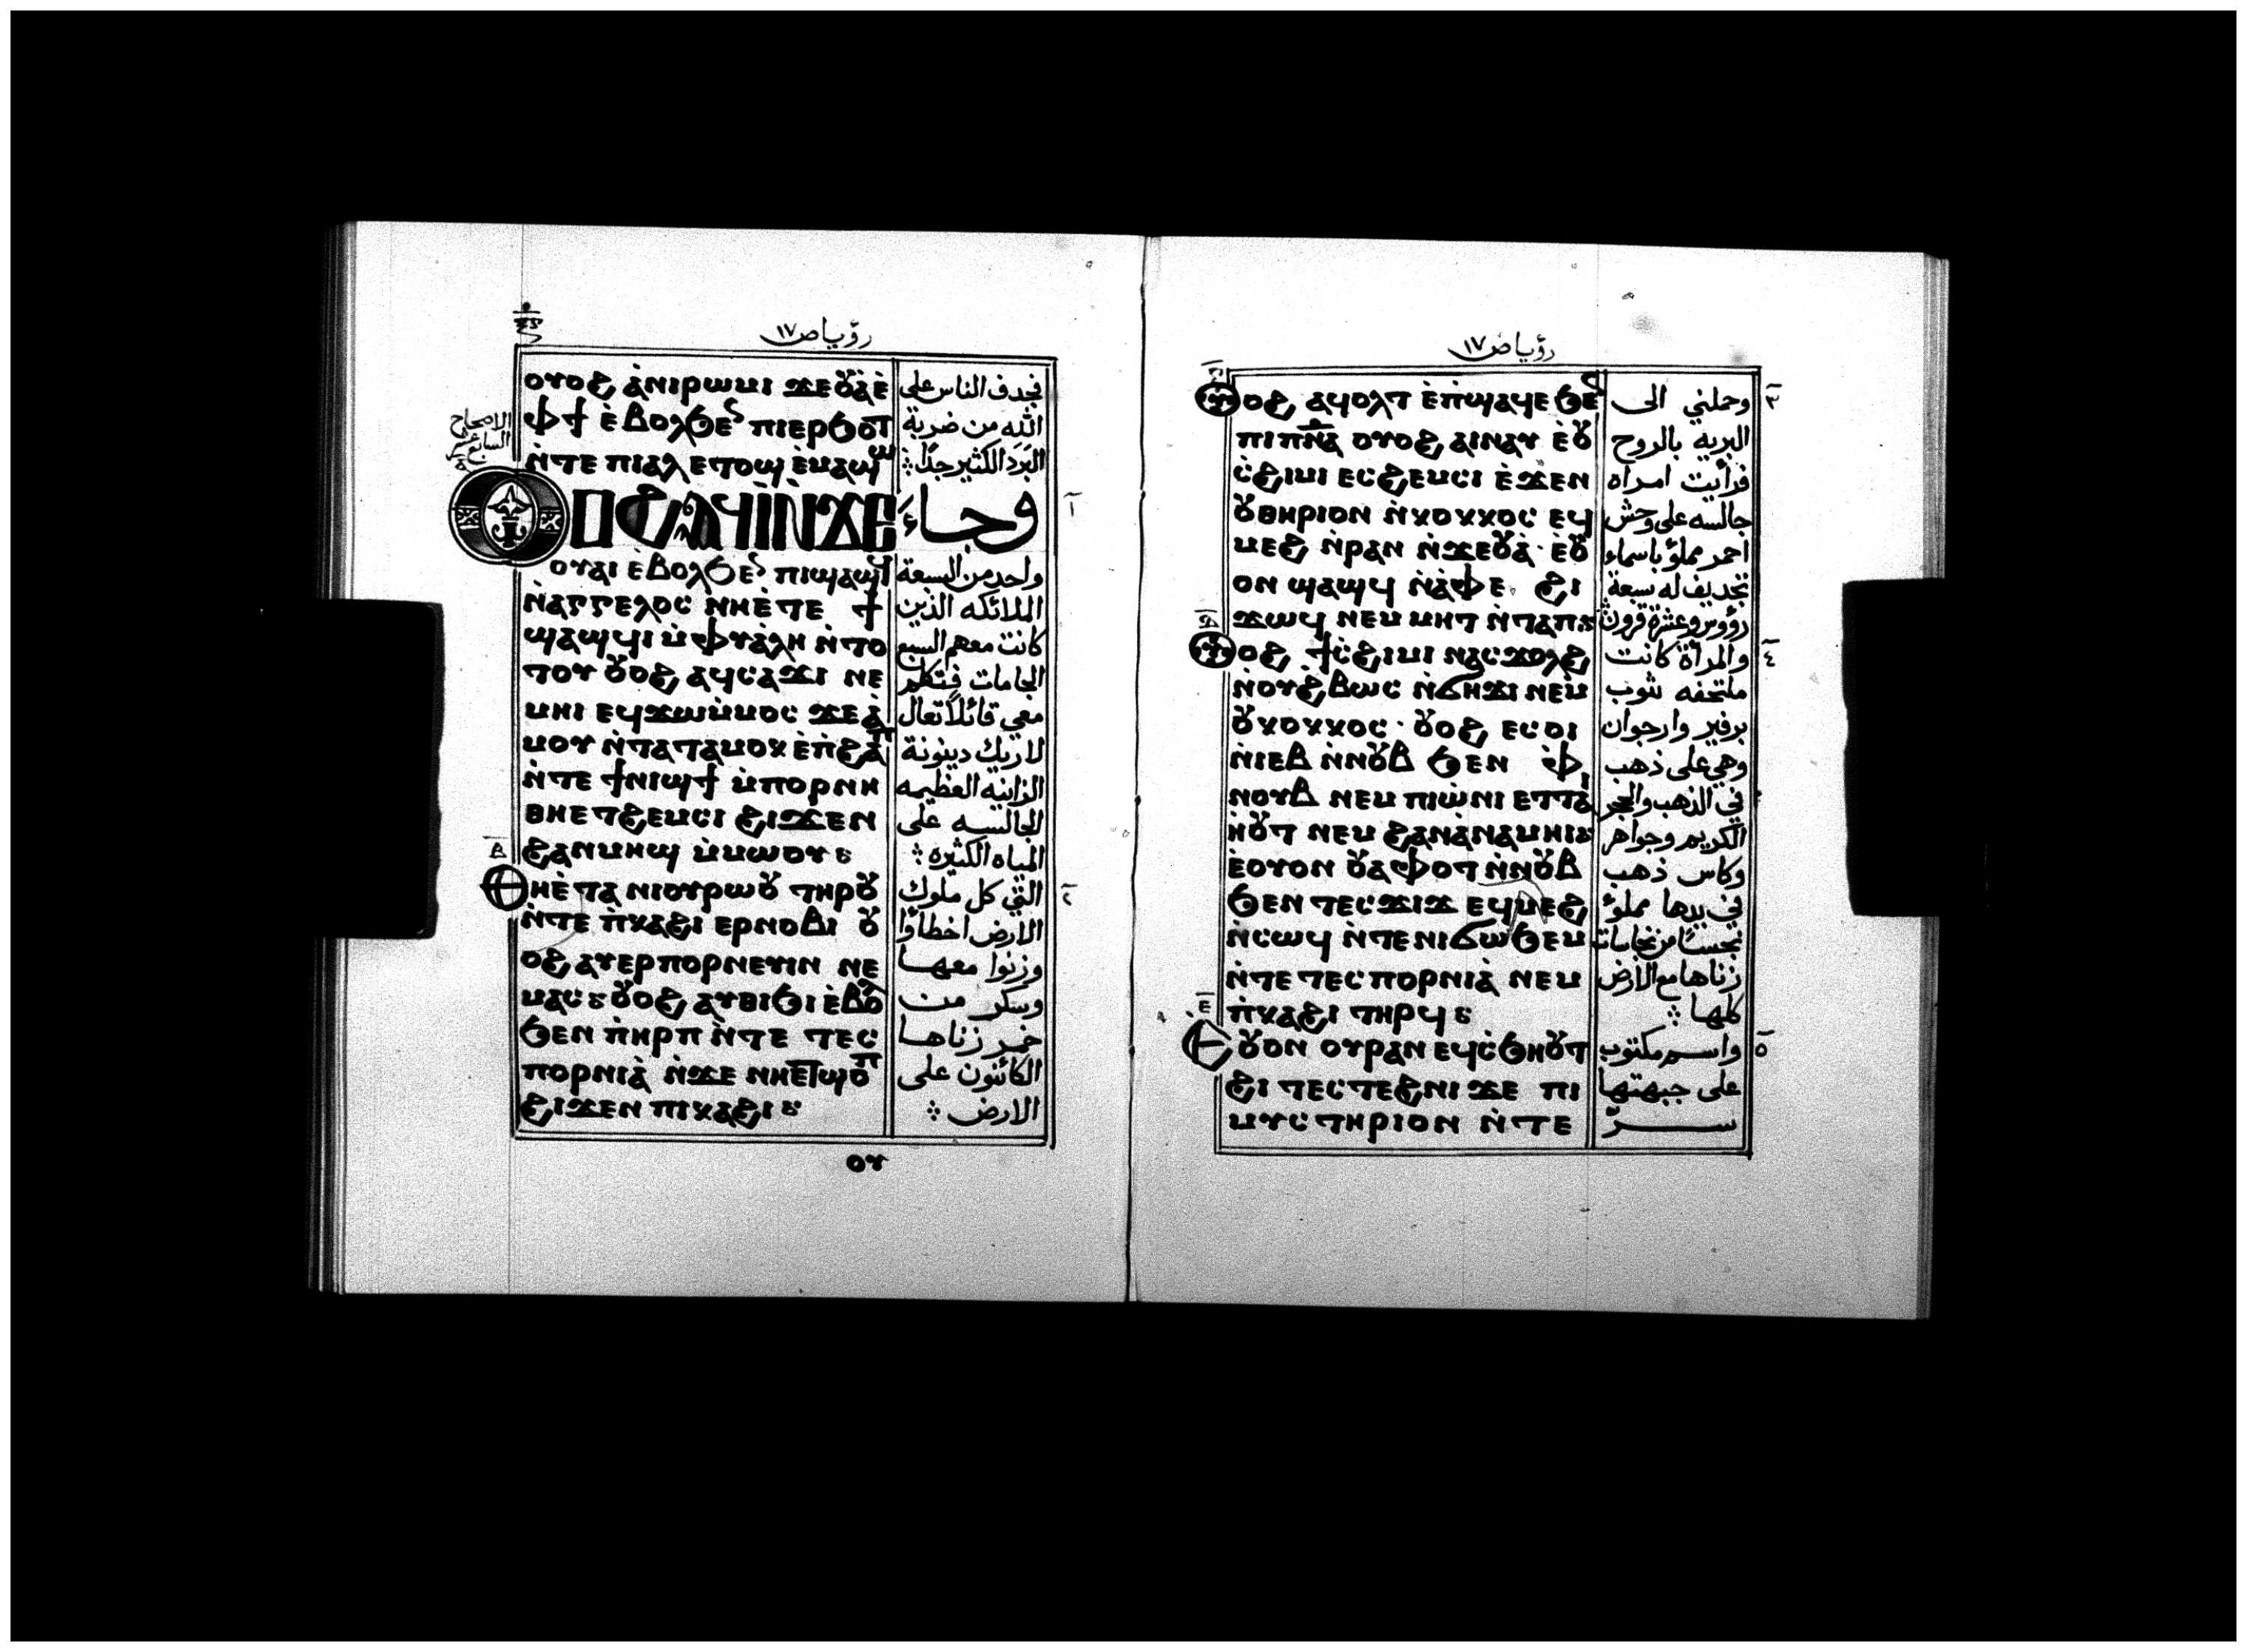 رؤيا ص ١٧
ⲟⲩⲟϩ ⲁ̀ⲛⲓⲣⲱⲙⲓ ϫⲉⲟⲩⲁ̀ⲉ̀
ⲫϯ ⲉ̀ⲃⲟⲗϧⲉⲛ ⲡⲓⲉⲣϧⲟⲧ
ⲛ̀ⲧⲉ ⲡⲓⲁⲗ ⲉⲧⲟϣ ⲉ̀ⲙⲁϣⲱ
ⲟⲩⲟϩ ⲁϥⲓ̀ ⲛ̀ϫⲉ
ⲟⲩⲁⲓ ⲉ̀ⲃⲟⲗϧⲉⲛ ⲡⲓϣⲁϣϥ
ⲛ̀ⲁⲅⲅⲉⲗⲟⲥ ⲛⲏⲉ̀ⲧⲉ ϯ
ϣⲁϣϥⲓ ⲙ̀ⲫⲩⲁ̀ⲗⲏ ⲛ̀ⲧⲟ
ⲧⲟⲩ ⲟⲩⲟϩ ⲁϥⲥⲁϫⲓ ⲛⲉ
ⲙⲏⲓ ⲉϥϫⲱⲙ̀ⲙⲟⲥ ϫⲉⲁ̀
ⲙⲟⲩ ⲛ̀ⲧⲁⲧⲁⲙⲟⲕ ⲉ̀ⲡ̀ϩⲁⲡ
ⲛ̀ⲧⲉ ϯⲛⲓϣϯ ⲙ̀ⲡⲟⲣⲛⲏ
ⲑⲏⲉⲧϩⲉⲙⲥⲓ ϩⲓϫⲉⲛ
ϩⲁⲛⲙⲏϣ ⲙ̀ⲙⲱⲟⲩ ⳾
ⲑⲏⲉ̀ⲧⲁ ⲛⲓⲟⲩⲣⲱⲟⲩ ⲧⲏⲣⲟⲩ
ⲛ̀ⲧⲉ ⲡ̀ⲕⲁϩⲓ ⲉⲣⲛⲟⲃⲓ ⲟⲩ
ⲟϩ ⲁⲩⲉⲣⲡⲟⲣⲛⲉⲩⲓⲛ ⲛⲉ
ⲙⲁⲥ ⳾ ⲟⲩⲟϩ ⲁⲩⲑⲓϧⲓ ⲉ̀ⲃⲟⲗ
ϧⲉⲛ ⲡ̀ⲏⲣⲡ ⲛ̀ⲧⲉ ⲧⲉⲥ
ⲡⲟⲣⲛⲓⲁ̀ ⲛ̀ϫⲉ ⲛⲏⲉⲧϣⲟⲡ
ϩⲓϫⲉⲛ ⲡⲓⲕⲁϩⲓ ⳾
ⲟⲩ
الاصحاح
السابع عشر
فجدف الناس على
الله من ضربة
البَرَد الكثير جدًا
وجاءَ
واحد من السبعة
الملائكه الذين
كانت معهم السبع
الجامات فتكلم
معي قائلاً تعال
لاريك دينونة
الزانيه العظيمه
الجالسه على
المياه الكثيره
التي كل ملوك
الارض اخطأوا
وزنوا معها
وسكر من
خمر زناها
الكائنون على
الارض
رؤيا ص ١٧
ⲟⲩⲟϩ ⲁϥⲟⲗⲧ ⲉ̀ⲡ̀ϣⲁϥⲉ ϧⲉⲛ
ⲡⲓⲡⲛⲁ ⲟⲩⲟϩ ⲁⲓⲛⲁⲩ ⲉ̀ⲟⲩ
ⲥ̀ϩⲓⲙⲓ ⲉⲥϩⲉⲙⲥⲓ ⲉ̀ϫⲉⲛ
ⲟⲩⲑⲏⲣⲓⲟⲛ ⲛ̀ⲕⲟⲕⲕⲟⲥ ⲉϥ
ⲙⲉϩ ⲛ̀ⲣⲁⲛ ⲛ̀ϫⲉⲟⲩⲁ̀ ⲉ̀ⲟⲩ
ⲟⲛ ϣⲁϣϥ ⲛ̀ⲁ̀ⲫⲉ ϩⲓ
ϫⲱϥ ⲛⲉⲙ ⲙⲏⲧ ⲛ̀ⲧⲁⲡ ⳾
ⲟⲩⲟϩ ϯⲥ̀ϩⲓⲙⲓ ⲛⲁⲥϫⲟⲗϩ
ⲛ̀ⲟⲩϩⲃⲱⲥ ⲛ̀ϭⲏϫⲓ ⲛⲉⲙ
ⲟⲩⲕⲟⲕⲕⲟⲥ · ⲟⲩⲟϩ ⲉⲥⲟⲓ
ⲛ̀ⲓⲉⲃ ⲛ̀ⲛⲟⲩⲃ ϧⲉⲛ ⲫ̀
ⲛⲟⲩⲃ ⲛⲉⲙ ⲡⲓⲱ̀ⲛⲓ ⲉⲧⲧⲁ
ⲏ̀ⲟⲩⲧ ⲛⲉⲙ ϩⲁⲛⲁ̀ⲛⲁⲙⲏⲓ ⳾
ⲉ̀ⲟⲩⲟⲛ ⲟⲩⲁⲫⲟⲧ ⲛ̀ⲛⲟⲩⲃ
ϧⲉⲛ ⲧⲉⲥϫⲓϫ ⲉϥⲙⲉϩ
ⲛ̀ⲥⲱϥ ⲛ̀ⲧⲉⲛⲓϭⲱϧⲉⲙ
ⲛ̀ⲧⲉ ⲧⲉⲥⲡⲟⲣⲛⲓⲁ̀ ⲛⲉⲙ
ⲡ̀ⲕⲁϩⲓ ⲧⲏⲣϥ ⳾
ⲉⲟⲩⲟⲛ ⲟⲩⲣⲁⲛ ⲉϥⲥ̀ϧⲏⲟⲩⲧ
ϩⲓ ⲧⲉⲥⲧⲉϩⲛⲓ ϫⲉ ⲡⲓ
ⲙⲩⲥⲧⲏⲣⲓⲟⲛ ⲛ̀ⲧⲉ
وحملني الى
البريه بالروح
فرأيت امراه
جالسه على وحش
احمر مملؤ باسماء
تجديف له سبعة
رؤوس وعشرة قرون
والمرأة كانت
ملتحفه بثوب
برفير وارجوان
وهي على ذهب
في الذهب والحجر
الكريم وجواهر
وكاس ذهب
في يدها مملؤ
نجسًا من نجاسات
زناها مع الارض
كلها
واسم مكتوب
على جبهتها
سرّ